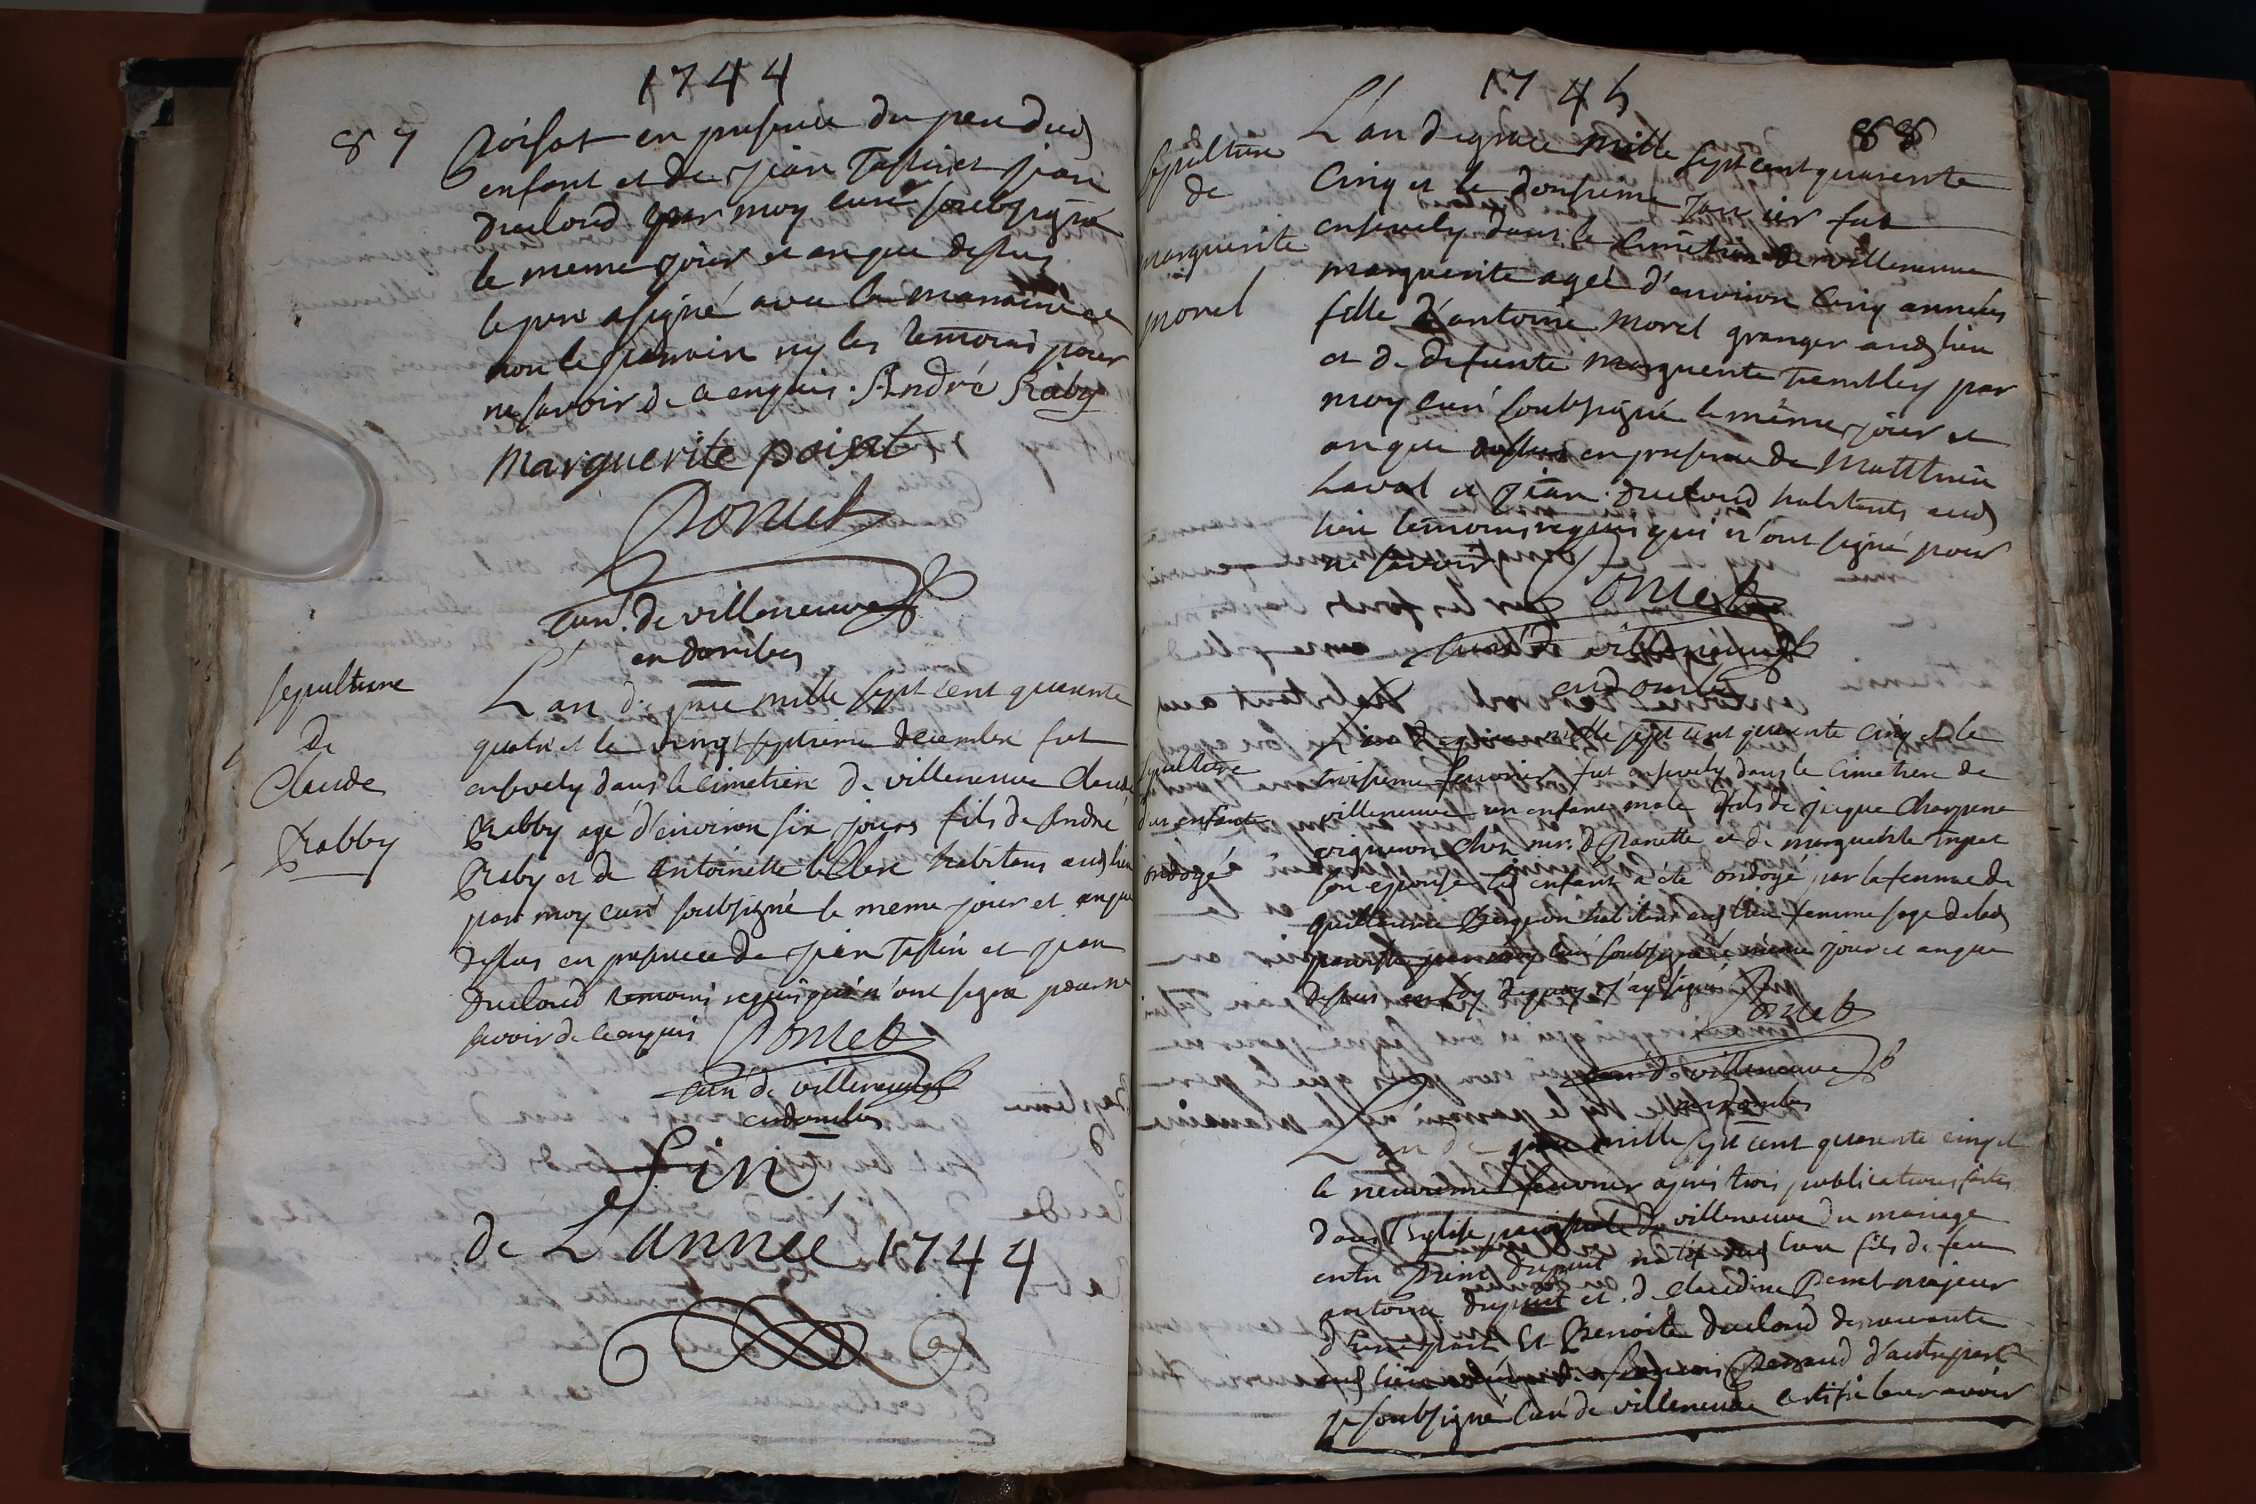 1744
87
poisat en presence du pere dud
enfant et de jean Taspin et jean
Ducloud par moy curé soubsigné
le meme jour et an que dessus
le pere a signé avec la maraine
non le parrain ny les temoins pour
ne savoir de ce enquis. André Raby
Marguerite poisat
Poncet
curé de villeneuve
en dombes
sepulture
de
Claude
Rabby
L'an de grace mille sept cent quarente
quatre et le vingt septieme decembre fut
ensevely dans le cimetiere de villeneuve Claude
Rabby agé d'environ six jours fils de André
Raby et de Antoinette leclerc habitans aud lieu
par moy curé soubsigné le meme jour et an que
dessus en presence de jean Taspin et jean
Ducloud temoins requis qui n'ont signé pour ne
savoir de ce enquis
Poncet
curé de villeneuve
en dombes
Fin
de L'année 1744
1745
88
sepulture
de
marguerite
morel
L'an de grace mille sept cent quarente
cinq et le douzieme Janvier fut
ensevely dans le cimetiere de villeneuve
marguerite agée d'environ cinq années
fille d'antoine morel granger aud lieu
et de defunte marguerite Trembley par
moy curé soubsigné le même jour et
an que dessus en presence de Matthieu
Laval et jean Ducloud habitants aud
lieu temoins requis qui n'ont signé pour
ne savoir
Poncet
curé de villeneuve
en dombes
sepulture
d'un enfant
ondoyé
L'an de grace mille sept cent quarente cinq et le
troisieme fevrier fut ensevely dans le cimetiere de
villeneuve un enfant male fils de jaque
vigneron chez mr. et de
son epouse led enfant a été ondoyé par la femme de
guillaume habitant aud lieu femme sage de lad
paroisse par moy curé soubsigné même jour et an que
dessus en foy dequoy j'ay signé
Poncet
curé de villeneuve
en dombes
L'an de grace mille sept cent quarente cinq et
le neuvieme fevrier apres trois publications faites
dans l'Eglise paroissiale de villeneuve du mariage
entre Dupuit natif dud lieu fils de feu
antoine dupuit et de claudine majeur
d'une part Et Benoite Ducloud demeurante
aud lieu d'autre part
je soubsigné curé de villeneuve certifie leur avoir